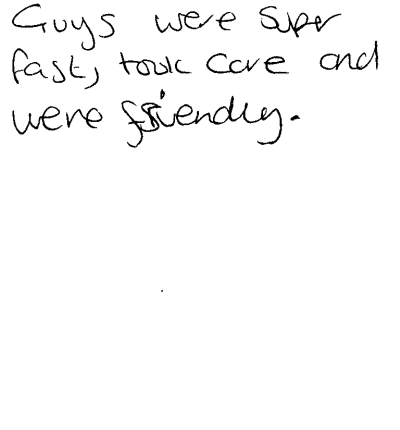 Guys were super
fast, took care and
were friendly.